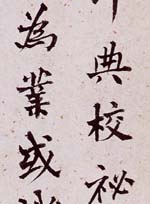 典校祕
為業或